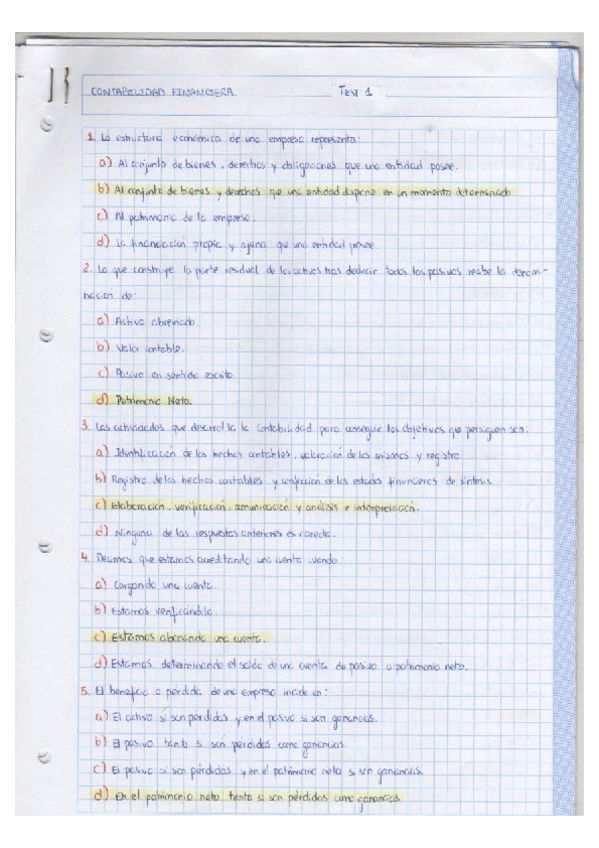 CONTABILIDAD FINANCIERA. TEST 1
1. La estructura económica de una empresa representa:
a) Al conjunto de bienes, derechos y obligaciones que una entidad posee.
b) Al conjunto de bienes y derechos que una entidad dispone en un momento determinado
c) Al patrimonio de la empresa.
d) La financiación propia y ajena que una entidad posee.
2. Lo que construye la parte residual de los activos tras deducir todos los pasivos recibe la denomi-
nación de:
a) Activo abreviado
b) Valor contable.
c) Pasivo en sentido escrito.
d) Patrimonio Neto.
3. Las actividades que desarrolla la Contabilidad para conseguir los objetivos que persiguen son:
a) Identificación de los hechos contables, valoración de los mismos y registro.
b) Registro de los hechos contables y confección de los estados financieros de síntesis.
c) Elaboración, verificación, comunicación y análisis e interpretación.
d) Ninguna de las respuestas anteriores es correcta.
4. Decimos que estamos acreditando una cuenta cuando:
a) Cargando una cuenta.
b) Estamos verificándola.
c) Estamos abonando una cuenta.
d) Estamos determinando el saldo de una cuenta de pasivo o patrimonio neto.
5. El beneficio o pérdida de una empresa incide en:
a) El activo si son pérdidas y en el pasivo si son ganancias.
b) El pasivo tanto si son pérdidas como ganancias.
c) El pasivo si son pérdidas y en el patrimonio neto si son ganancias.
d) En el patrimonio neto tanto si son pérdidas como ganancias.